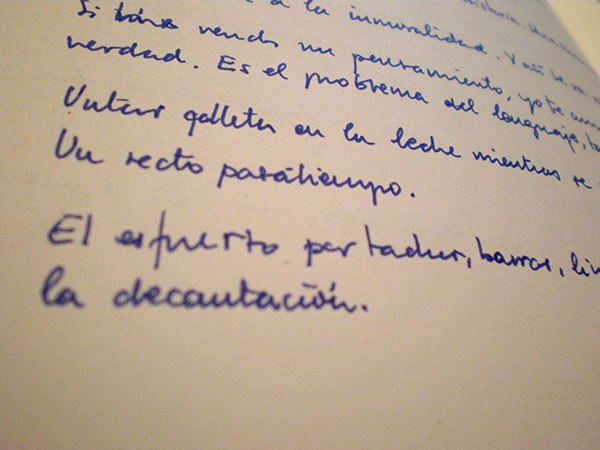 a la inmoralidad. Y así se va
Si vendo un pensamiento, yo te
verdad. Es el problema del lenguaje,
Untar galletas en la leche mientras se
Un recto pasatiempo.
El esfuerzo por tachar, borrar,
la decantación.